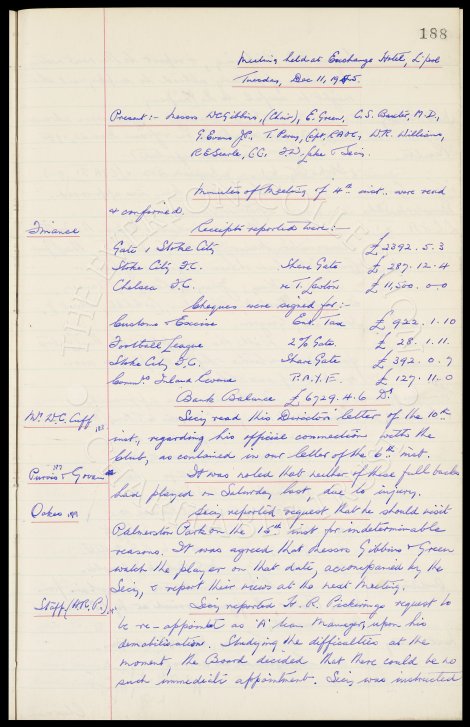 188
Meeting held at Exchange Hotel, L'pool
Tuesday, Dec 11, 1945.
Present:- Messrs W.C. Gibbins, (Chair), E. Green, C.S. Baxter, M.D.,
G. Evans J.P. T. Percy, Capt, RAOC, W.R. Williams,
R.E. Searle, C.C. & Secy.
Minutes of Meeting of 4th inst. were read
& confirmed.
Finance
Receipts reported were:-
Gate v Stoke City £2392. 5. 3
Stoke City F.C. Share Gate £ 287. 12. 4
Chelsea F.C. re T. Lawton £ 11,500. 0. 0
Cheques were signed for:-
Customs & Excise Ent. Tax £ 922. 1. 10
Football League 2% Gate £ 28. 1. 11.
Stoke City F.C. Share Gate £ 392. 0. 7
Commrs Inland Revenue P.A.Y.E. £ 127. 11. 0
Bank Balance £ 6729. 4. 6 Dr
Mr. W.C. Cuff
Secy read this Director's letter of the 10th
inst, regarding his official connections with the
Club, as contained in our letter of the 6th inst.
It was noted that neither of these full backs
had played on Saturday last, due to injury.
Oakes
Secy reported request that he should visit
Palmerston Park on the 15th inst for indeterminable
reasons. It was agreed that Messrs Gibbins & Green
watch the player on that date, accompanied by the
Secy, & report their views at the next meeting.
Staff (H.R.P.)
Secy reported H.R. Pickering's request to
be re-appointed as 'A' team Manager, upon his
demobilisation. Studying the difficulties at the
moment, the Board decided that there could be no
such immediate appointment. Secy was instructed